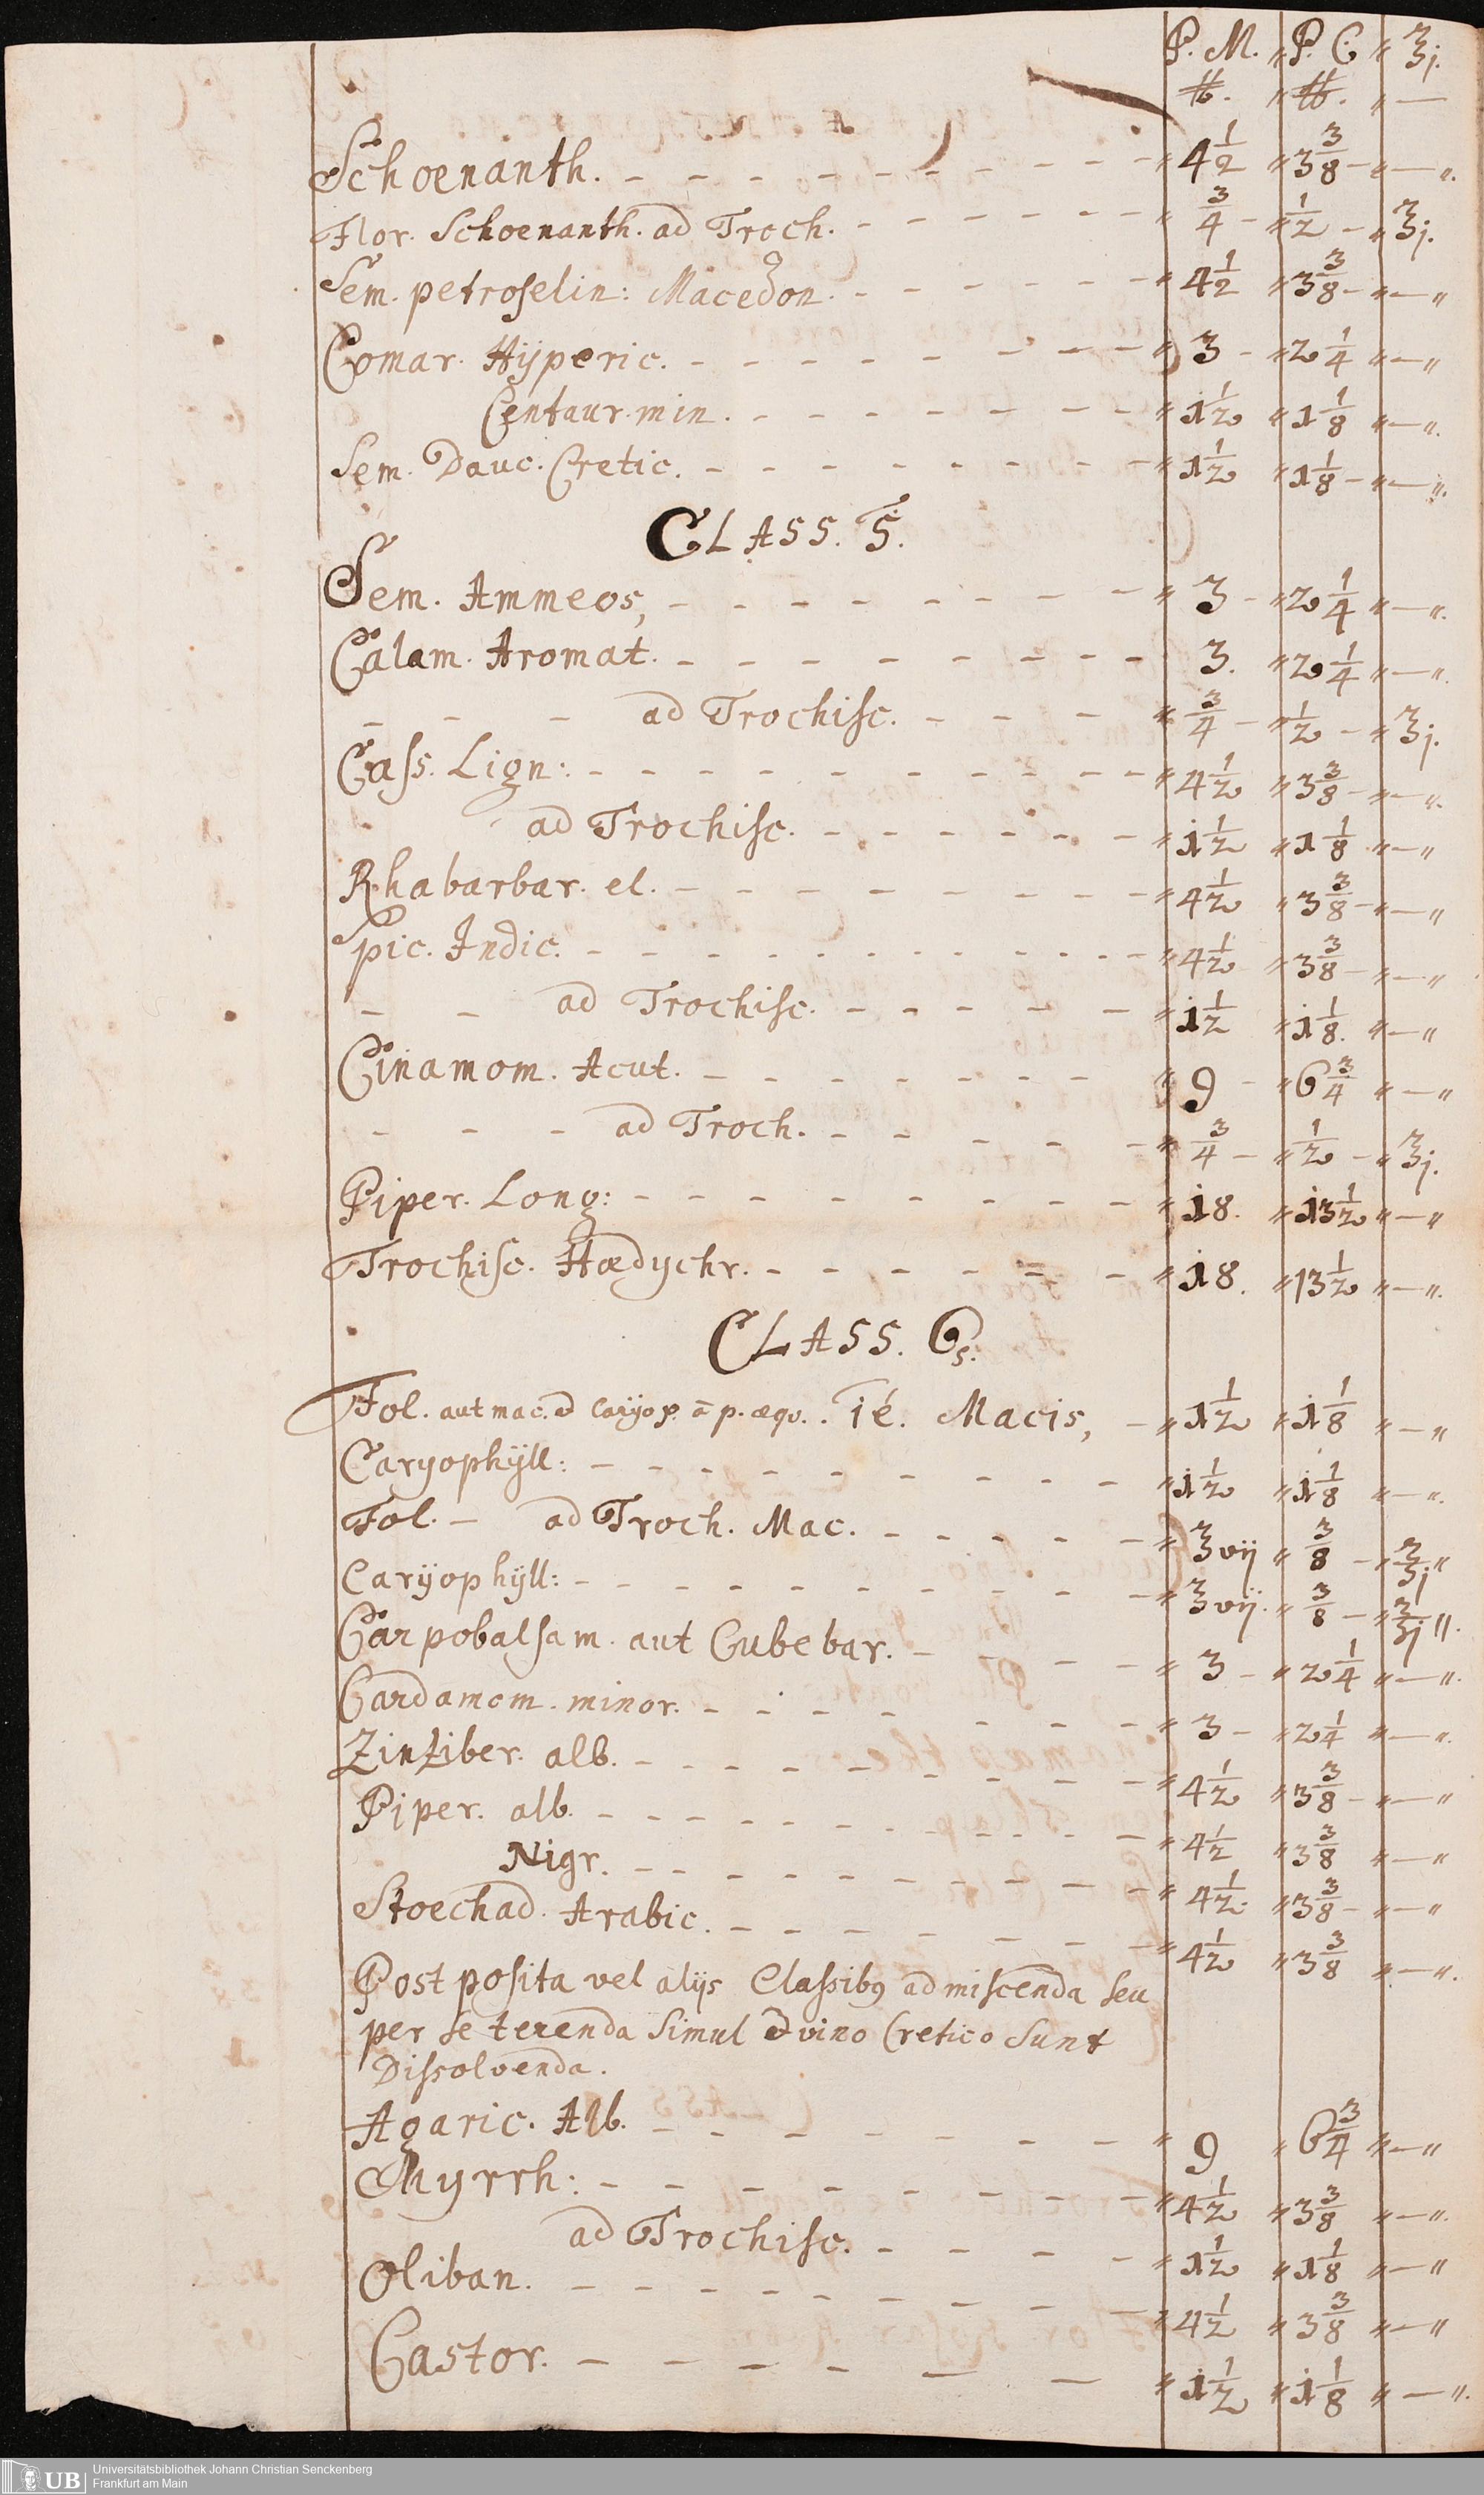 P. M. 〃 P. C 〃 ʒj.
℔. 〃 ℔. 〃 —
Schoenanth. - - - - - - - - - 〃 4 1/2 〃 3 3/8 - 〃 — 〃.
Flor. Schoenanth. ad Troch. - - - - - - 〃 3/4 - 〃 1/2 - 〃 ʒj.
Sem. petroselin: Macedon. - - - - - - 〃 4 1/2 〃 3 3/8 - 〃 — 〃
Comar. Hÿperic. - - - - - - - - 〃 3 - 〃 2 1/4 〃 — 〃
Centaur. min. - - - - - - - 〃 1 1/2 〃 1 1/8 〃 — 〃.
Sem. Dauc. Cretic. - - - - - - - - 〃 1 1/2 〃 1 1/8 - 〃 — 〃.
CLASS. 5.
Sem. Ammeos, - - - - - - - - 〃 3 - 〃 2 1/4 〃 — 〃.
Calam. Aromat. - - - - - - - - 3. 〃 2 1/4 〃 — 〃.
- - - ad Trochisc. - - - 〃 3/4 - 〃 1/2 - 〃 ʒj.
Cass. Lign: - - - - - - - - - - 〃 4 1/2 〃 3 3/8 - 〃 — 〃.
ad Trochisc. - - - - - - 〃 1 1/2 〃 1 1/8 〃 — 〃
Rhabarbar. el. - - - - - - - - 〃 4 1/2 〃 3 3/8 - 〃 — 〃
Spic. Indic. - - - - - - - - - - - 〃 4 1/2 〃 3 3/8 - 〃 — 〃
- - ad Trochisc. - - - - - 〃 1 1/2 〃 1 1/8. 〃 — 〃
Cinamom. Acut. - - - - - - - 〃 9 - 〃 6 3/4 〃 — 〃
- - - ad Troch. - - - - - 〃 3/4 - 〃 1/2 - 〃 ʒj.
Piper. Long: - - - - - - - - - 〃 18. 〃 13 1/2 〃 — 〃
Trochisc. Hædychr. - - - - - - - 〃 18. 〃 13 1/2 〃 — 〃.
CLASS. 6s.
Fol. aut mac. & Carÿop. ā p. æqu. . ié. Macis, - 〃 1 1/2 〃 1 1/8 〃 — 〃
Caryophÿll: - - - - - - - - - 〃 1 1/2 〃 1 1/8 〃 — 〃.
Fol. - ad Troch. Mac. - - - - - 〃 ʒvij 〃 3/8 - 〃 ʒj 〃
Carÿophÿll: - - - - - - - - - - 〃 ʒvij. 〃 3/8 - 〃 ʒj 〃.
Carpobalsam. aut Cubebar. - - - - 〃 3 - 〃 2 1/4 〃 — 〃.
Cardamom. minor. - - - - - - - 〃 3 - 〃 2 1/4 〃 — 〃.
Zinziber. alb. - - - - - - - - - 〃 4 1/2 〃 3 3/8 - 〃 — 〃
Piper. alb. - - - - - - - - - - - 〃 4 1/2 〃 3 3/8 〃 — 〃
Nigr. - - - - - - - - - 〃 4 1/2. 〃 3 3/8 - 〃 — 〃
Stoechad. Arabic. - - - - - - - - 〃 4 1/2 〃 3 3/8 〃 — 〃.
Post posita vel alijs Classibꝰ admiscenda seu
per se terenda simul & vino Cretico sunt
Dissolvenda.
Agaric. Alb. - - - - - - - - 〃 9 〃 6 3/4 〃 — 〃
Myrrh: - - - - - - - - - 〃 4 1/2 〃 3 3/8 〃 — 〃.
ad Trochisc. - - - - 〃 1 1/2 〃 1 1/8 〃 — 〃
Oliban. - - - - - - - - - - 〃 4 1/2 〃 3 3/8 〃 — 〃
Castor. - - - - - - 〃 1 1/2 〃 1 1/8 〃 — 〃.
UB
Universitätsbibliothek Johann Christian Senckenberg
Frankfurt am Main